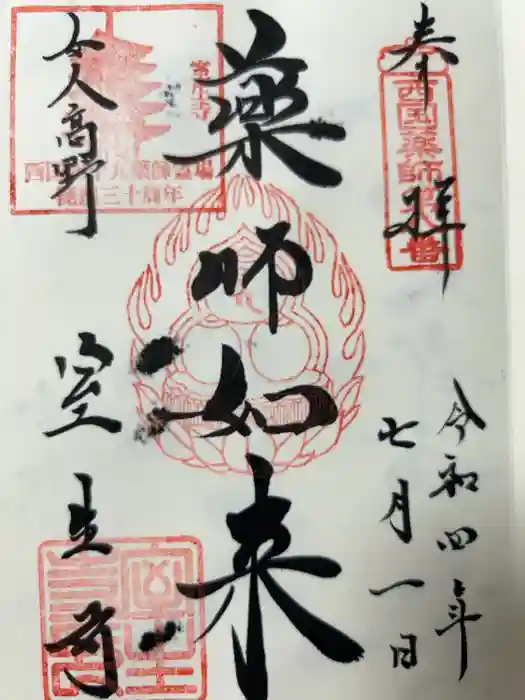 奉拝
西国薬師第八番
令和四年
七月一日
薬師如来
女人高野
室生寺
室生寺
西国四十九薬師霊場
三十周年